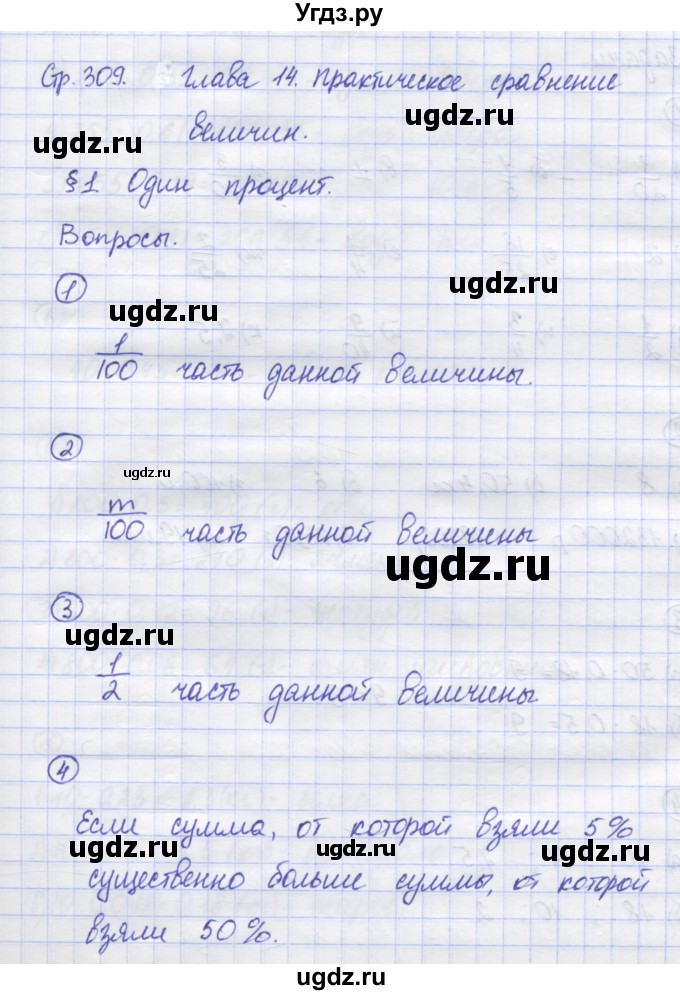 Угдз.ру
Стр. 309. Глава 14. Практическое сравнение
ugdz.ru
ugdz.ru величин.
§1 Один процент.
Вопросы.
1
ugdz.ru ugdz.ru
1/100 часть данной величины.
2
ugdz.ru
m/100 часть данной величины
ugdz.ru
3
ugdz.ru
1/2 часть данной величины
4
Если сумма, от которой взяли 5%
ugdz.ru ugdz.ru ugdz.ru
существенно больше суммы, от которой
взяли 50%.
ugdz.ru
ugdz.ru